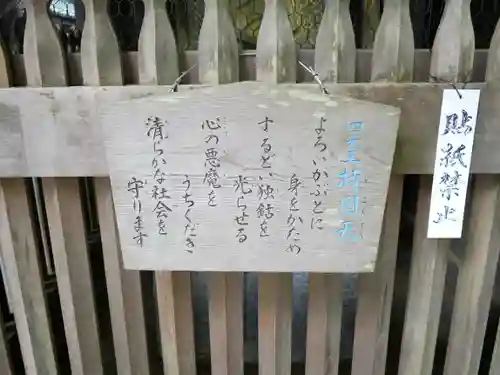 貼紙禁止
四王持国天
よろいかぶとに
身をかため
するどい独鈷を
光らせる
心の悪魔を
うちくだき
清らかな社会を
守ります